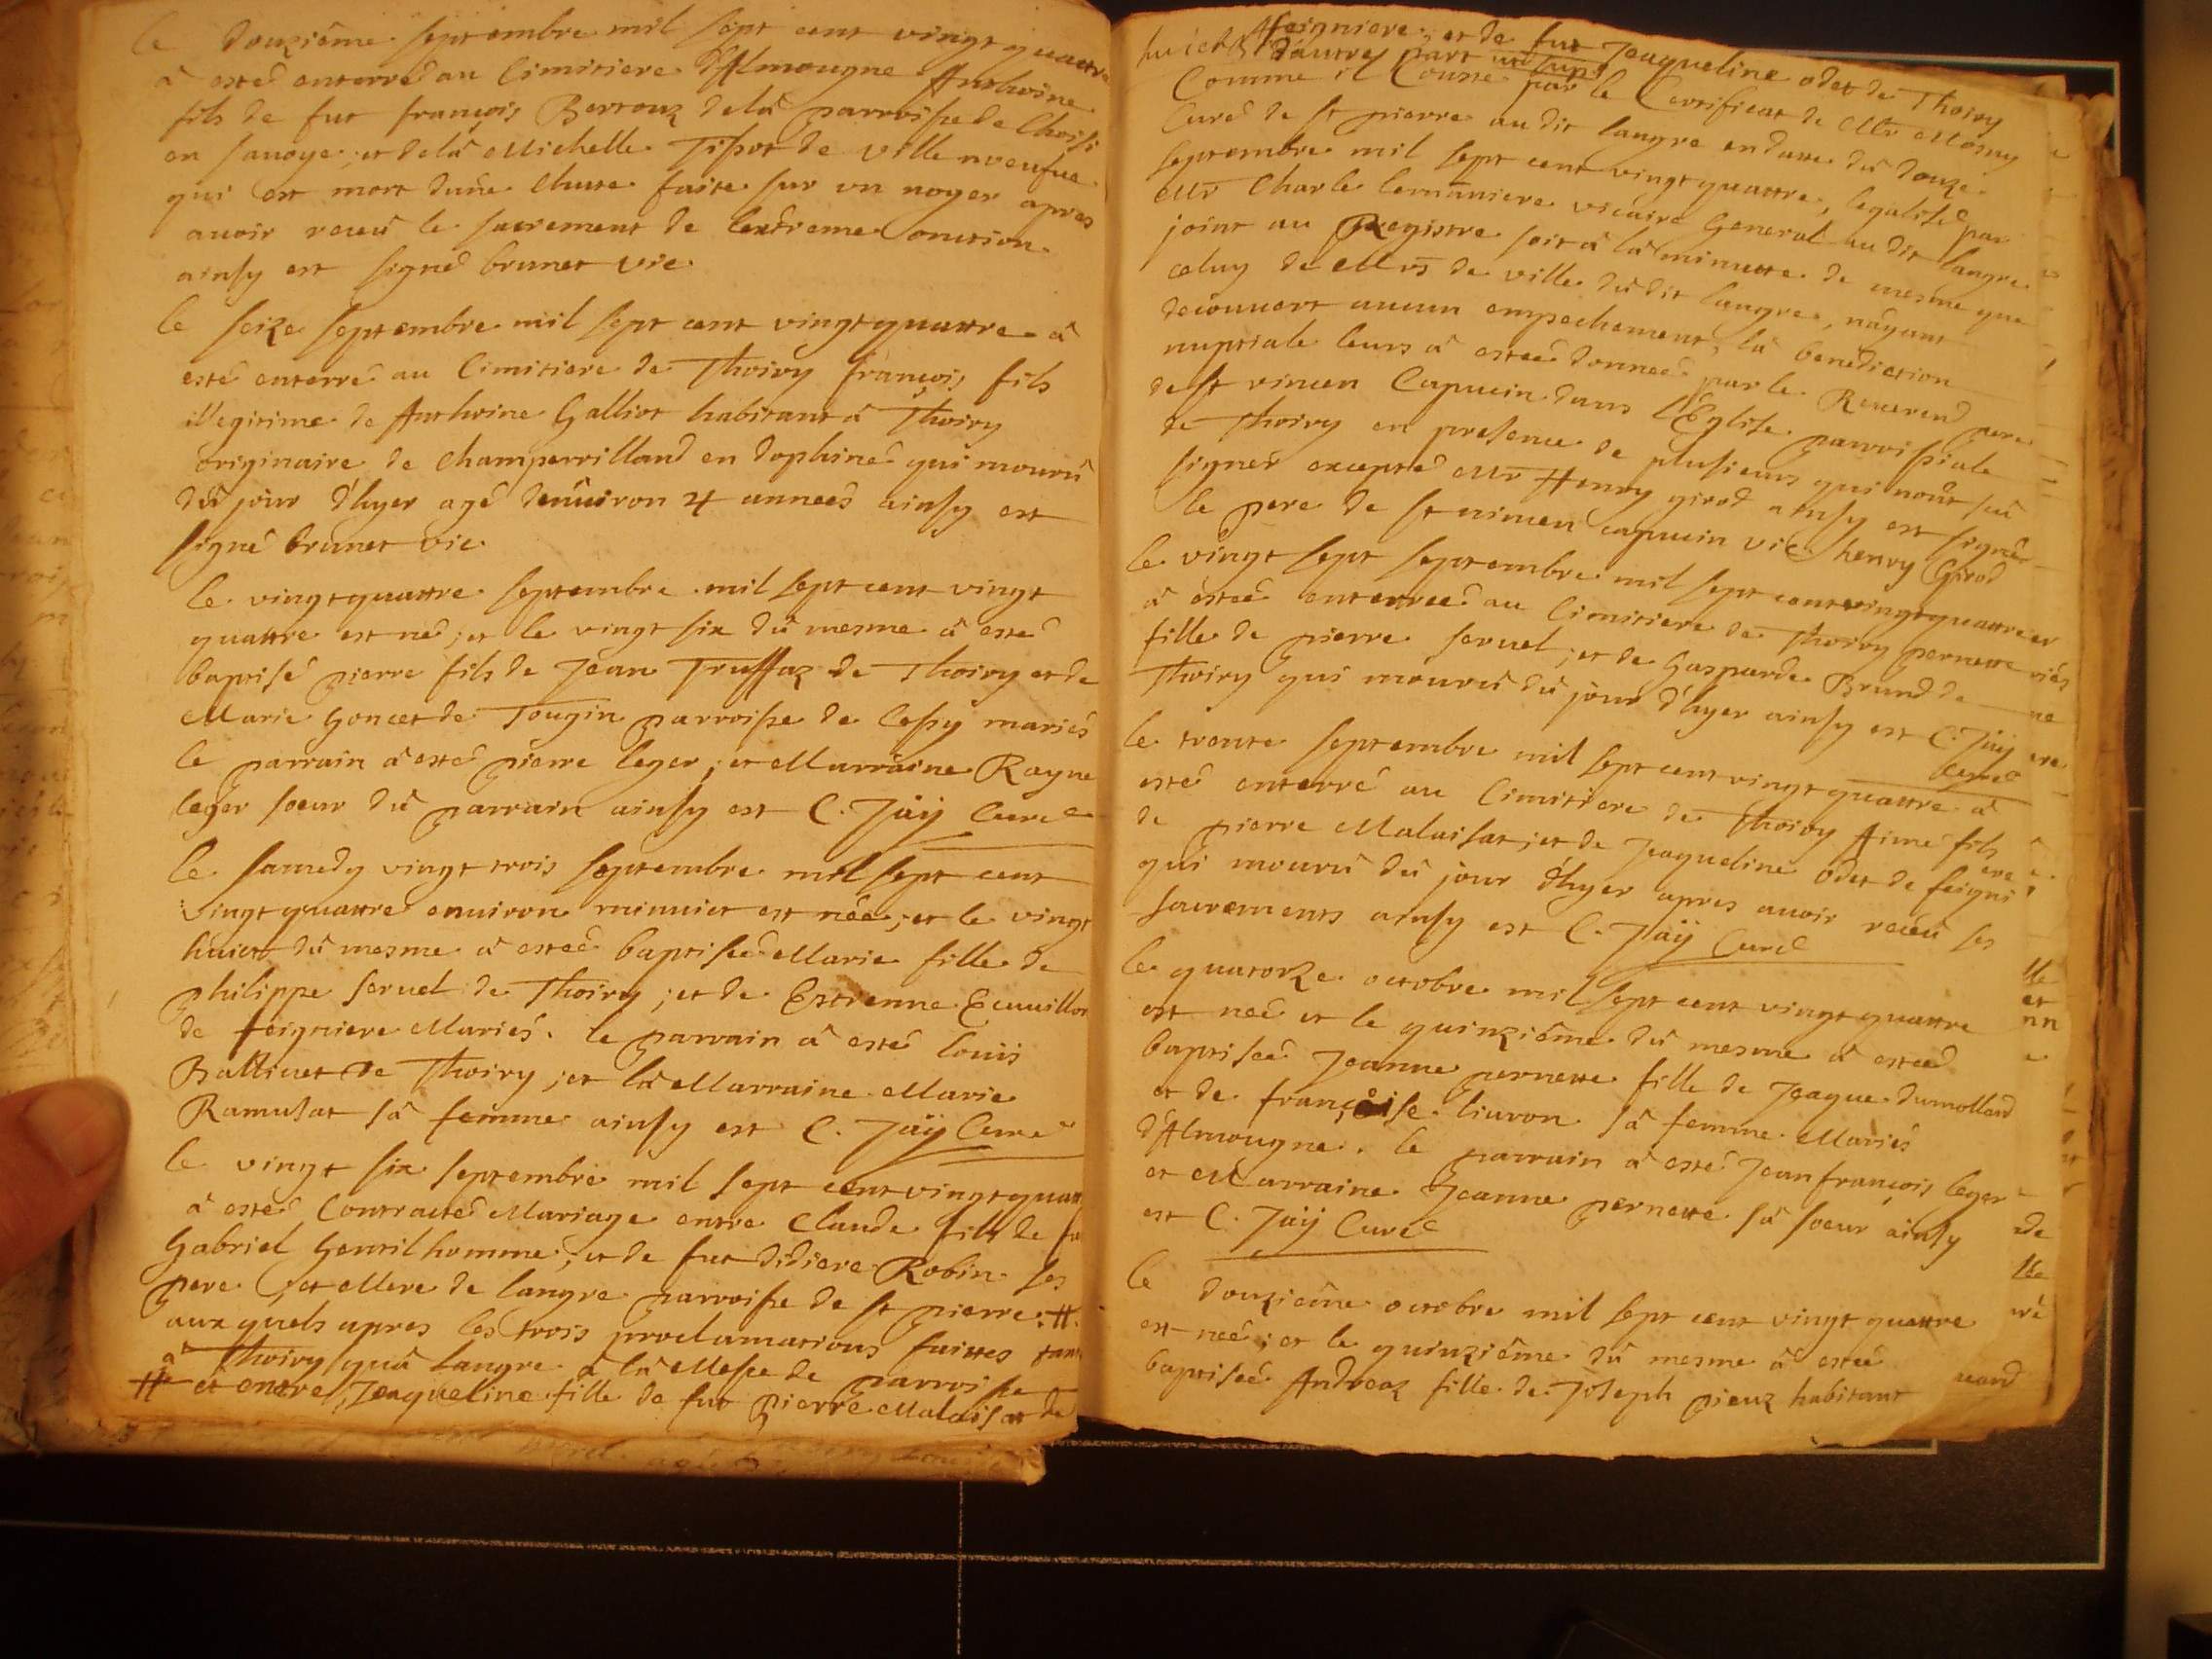 le douziême septembre mil sept cent vingt quattre
à esté enterré au Cimitiere d'Almougne Anthoine
fils de fut françois Bertouz de là parroisse de Choisi
en sauoye ; et de là Michelle Tissot de ville noeufue
qui est mort dune chute faite sur un noyer apres
auoir receu le sacrement de lextreme onction
ainsy est signé brunet vic
le seize septembre mil sept cent vingtquattre à
esté enterré au Cimitiere de Thoiry françois fils
illegitime de Anthoine Galliot habitant à Thoiry
originaire de Champerrilland en dophiné qui mourû
dû jour d'hyer agé denuiron 4 années ainsy est
signé brunet vic
le vingtquattre septembre mil sept cent vingt
quattre est né ; et le vingt six dû mesme à esté
baptisé pierre fils de Jean Truffaz de Thoiry et de
Marie Goncet de Tougin parroisse de Cessy mariés
le parrain à esté pierre leger ; et Marraine Rayne
leger soeur dû parrain ainsy est C. Jäij Curé
le samedy vingt trois septembre mil sept cent
vingtquattre enuiron minuict est née ; et le vingt
huict dû mesme à estée baptisée Marie fille de
philippe feruel de Thoiry ; et de Estienne Ecuuillon
de feigniere Mariés. le parrain à esté louis
Balliuet de Thoiry ; et là Marraine Marie
Ramusat sâ femme ainsy est C. Jäij Curé
le vingt six septembre mil sept cent vingtquatt
à esté Contracté Mariage entre Claude fils de fu
Gabriel Gentilhomme ; et de fut didiere Robin ses
pere et Mere de langre parroisse de st pierre. #.
auxquels apres les trois proclamations faittes tant
à Thoiry quà langre à là Messe de parroisse
# et entre Jeaqueline fille de fut pierre Malaisat de
feigniere ; et de fut Jeaqueline odet de Thoiry
d'autre part
Comme il Conste par le Certificat de Mr
Curé de st pierre au dit langre en datte dû douze
septembre mil sept cent vingtquattre, legalisé par
Mr Charle lemaniere vicaire General au dit langre
joint au Registre soit à là minutte de mesme que
celuy de Mrs de ville dû dit langre, nayant
decouuert aucun empechement, là benediction
nuptiale leurs à estée donnée par le Reuerend pere
de st vincen Capucin dans l'Eglise parroissiale
de Thoiry en presence de plusieurs qui nont sû
signer excepté Mr Henry girod ainsy est signé
le pere de st vincen capucin vic henry Girod
le vingt sept septembre mil sept cent vingtquattre
à estée enterrée au Cimitiere de Thoiry pernette
fille de pierre feruel ; et de Gasparde Brund de
Thoiry qui mourû dû jour d'hyer ainsy est C. Jäij
Curé
le trente septembre mil sept cent vingt quattre à
esté enterré au Cimitiere de Thoiry Aimé fils
de pierre Malaisat ; et de Jeaqueline Odet de feigni
ere
qui mourû dû jour d'hyer apres auoir receu ses
sacrements ainsy est C. Jäij Curé
le quatorze octobre mil sept cent vingt quattre
est née et le quinziême dû mesme à estée
baptisée Jeanne pernette fille de Jeaque dumolland
et de françoise liuron sâ femme Mariés
d'Almougne. le parrain à esté Jean françois leger
et Marraine Jeanne pernette sâ soeur ainsy
est C. Jäij Curé
le douziême octobre mil sept cent vingt quattre
est née ; et le quinziême dû mesme à estée
baptisée Andreaz fille de Joseph pieuz habitant